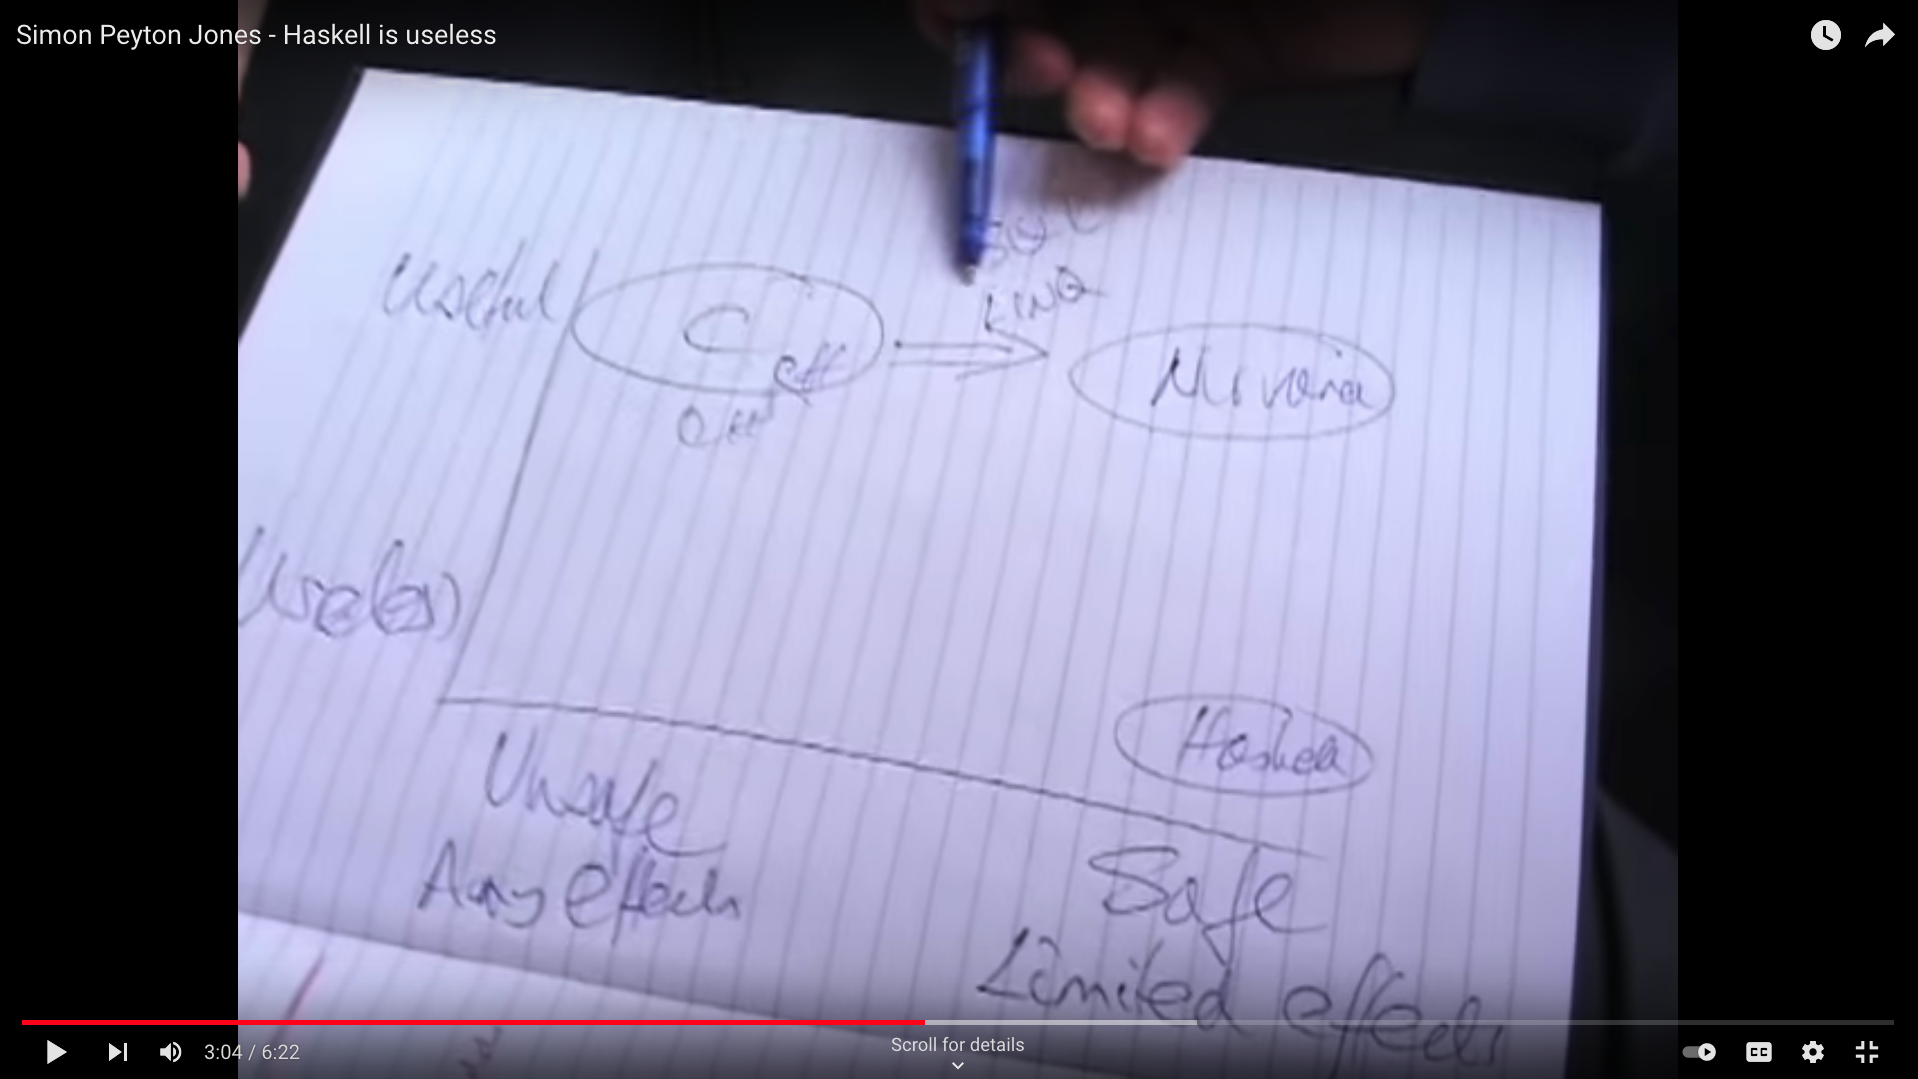 Simon Peyton Jones - Haskell is useless
SQL
LINQ
Useful
C
Nirvana
Useless
Haskell
Unsafe
Any effects
Safe
Limited effects
3:04 / 6:22
Scroll for details
CC